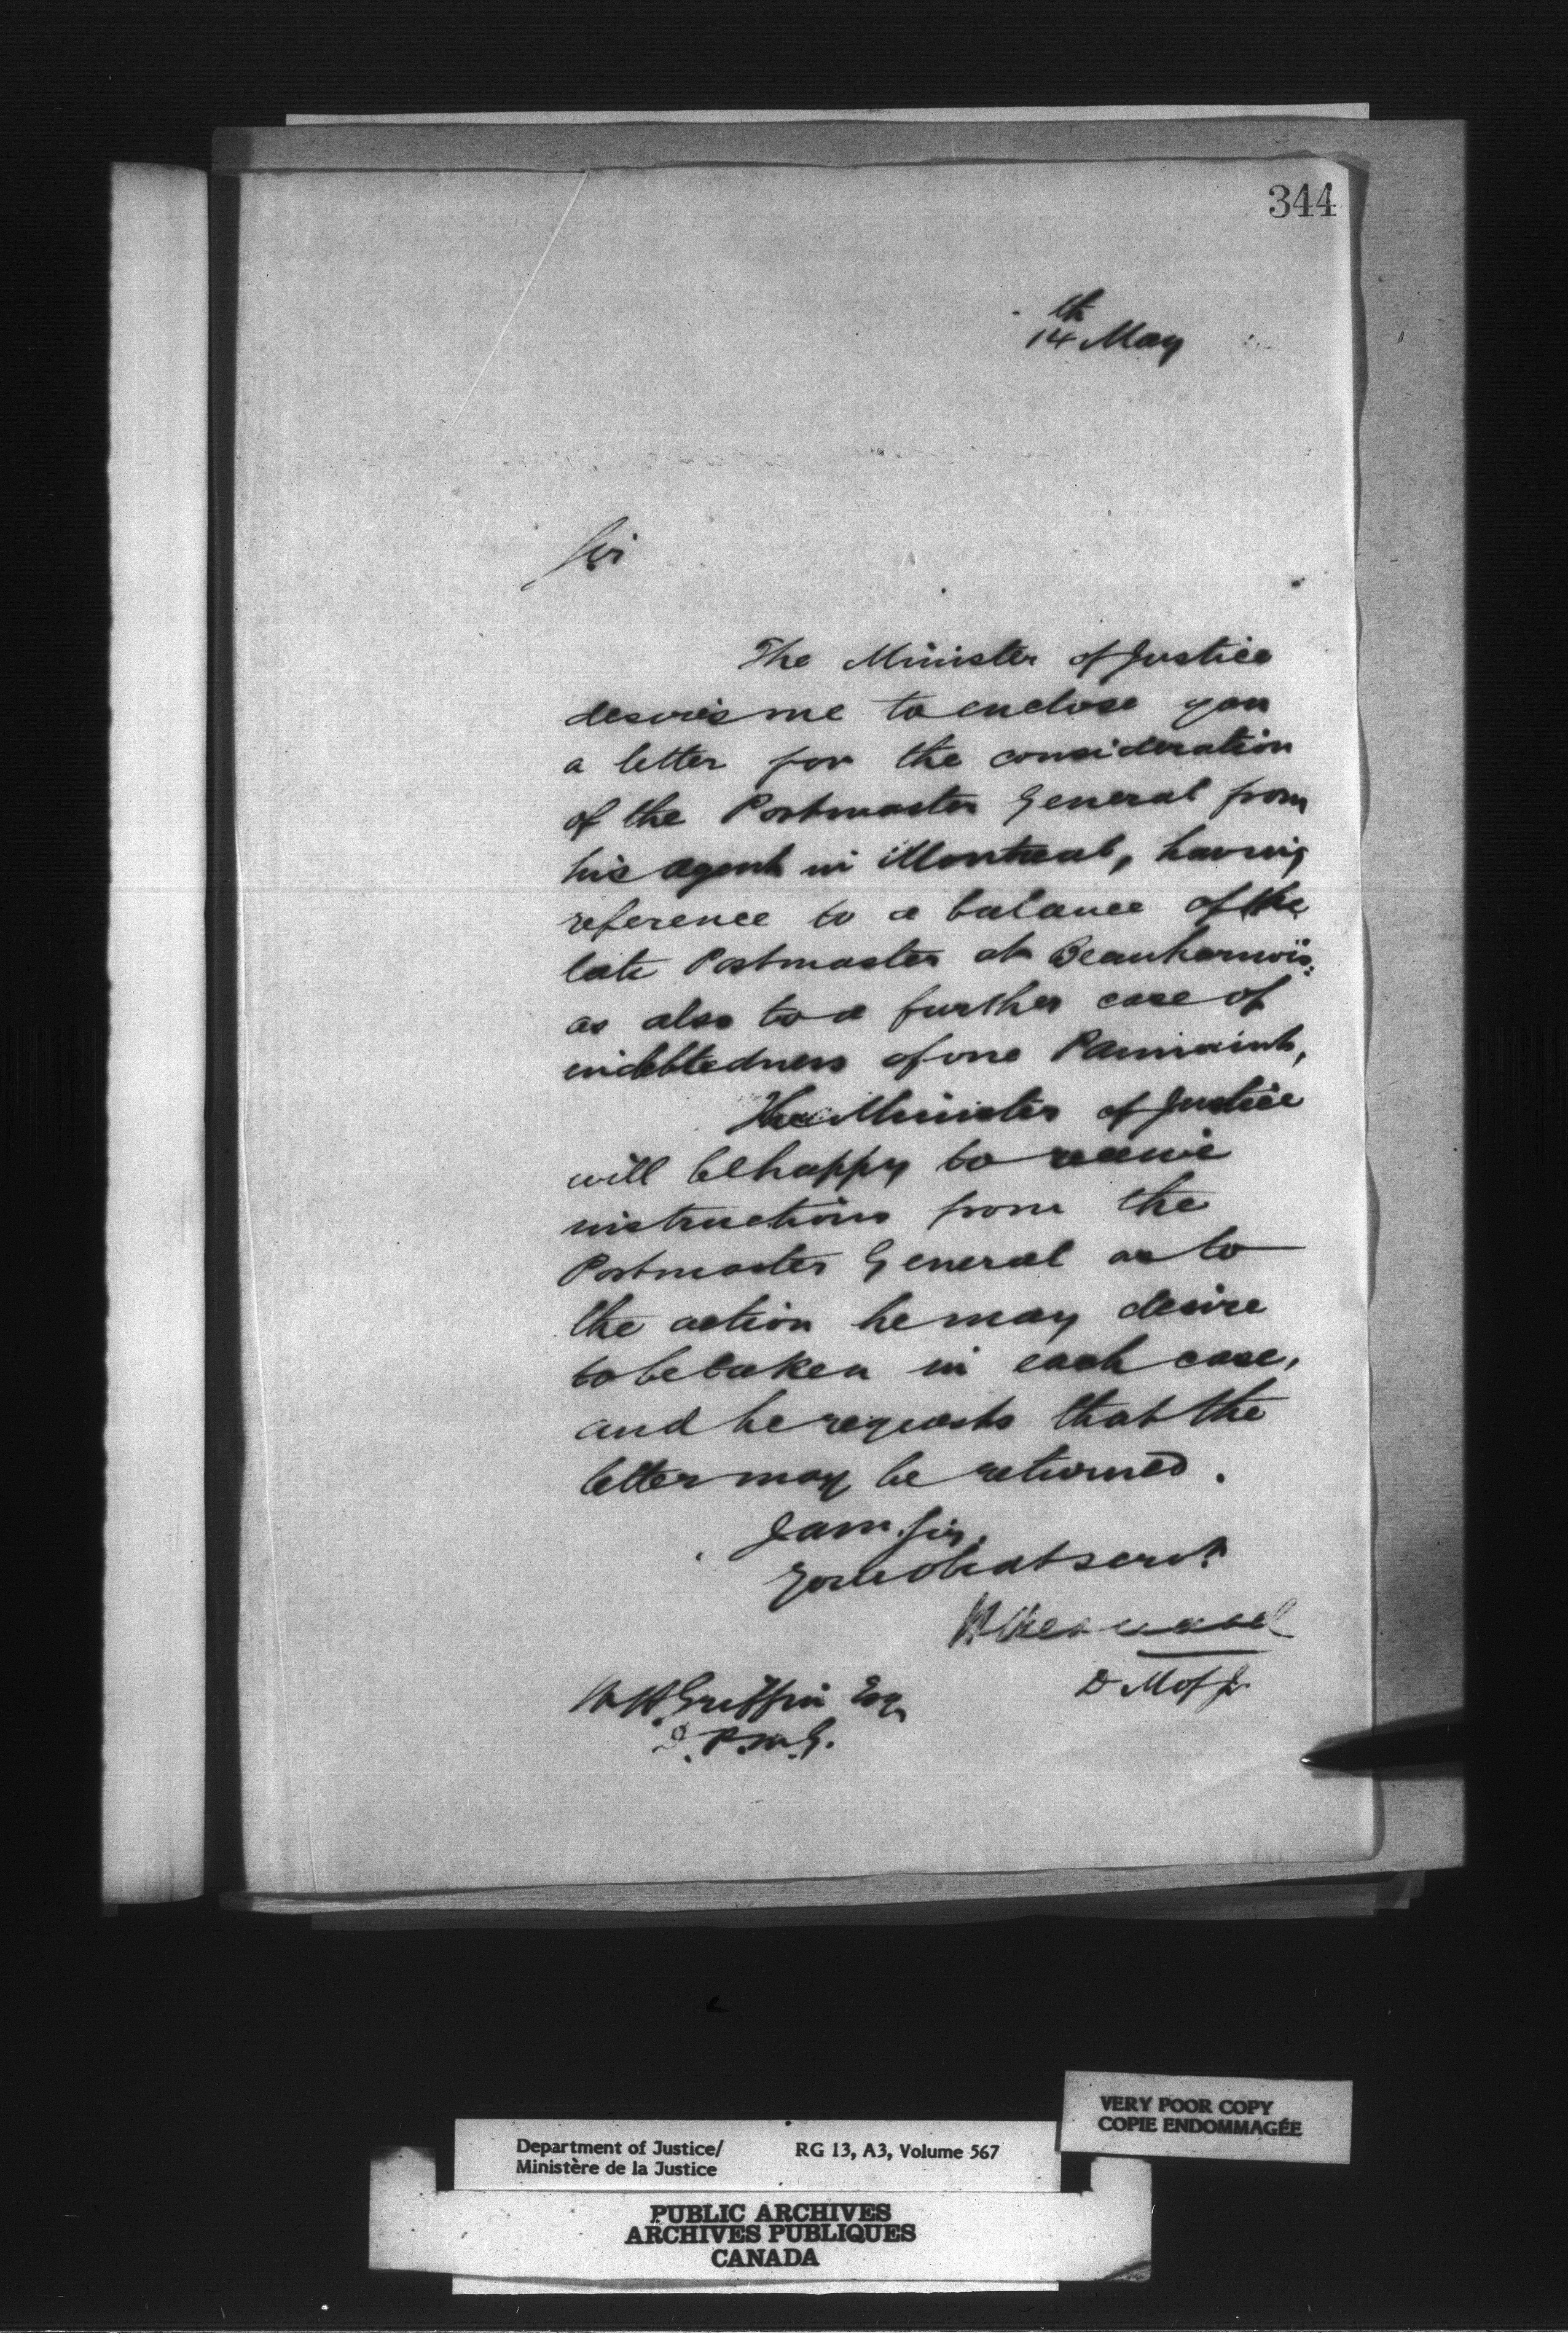 344
14th May
Sir
The Minister of Justice
desires me to enclose you
a letter for the consideration
of the Postmaster General from
his agent in Montreal, having
reference to a balance of the
late Postmaster at Beauharnois:
as also to a further case of
indebtedness of one
The Minister of Justice
will be happy to receive
instructions from the
Postmaster General as to
the action he may desire
to be taken in each case,
and he requests that the
letter may be returned.
I am. Sir,
Your obedt servt
D M of J
W H Griffin Esq
D. P. M. G.
VERY POOR COPY
COPIE ENDOMMAGÉE
Department of Justice/ RG 13, A3, Volume 567
Ministère de la Justice
PUBLIC ARCHIVES
ARCHIVES PUBLIQUES
CANADA